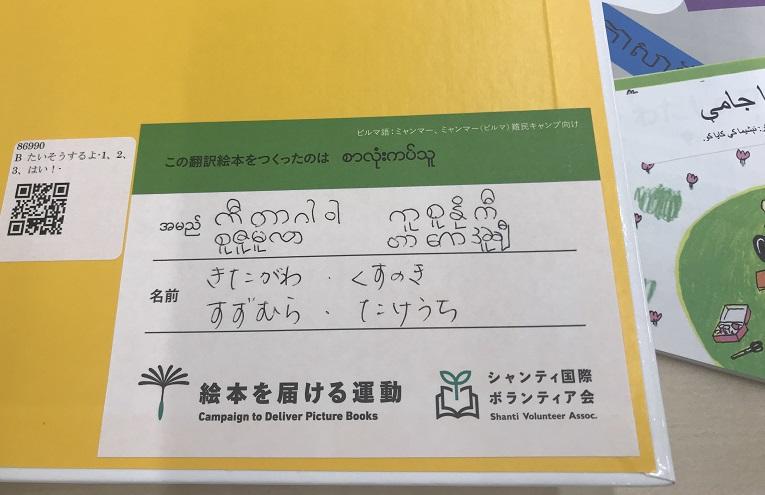 86990
B たいそうするよ·1、2、
3、はい!·
ビルマ語:ミャンマー、ミャンマー(ビルマ)難民キャンプ向け
この翻訳絵本をつくったのは စာလုံးကပ်သူ
အမည် ကီတာဂါဝါ ကူစူနိုကီ
စူဇူမူလာ တာကေအူချီ
名前 きたがわ · くすのき
すずむら · たけうち
絵本を届ける運動
Campaign to Deliver Picture Books
シャンティ国際
ボランティア会
Shanti Volunteer Assoc.
جامي